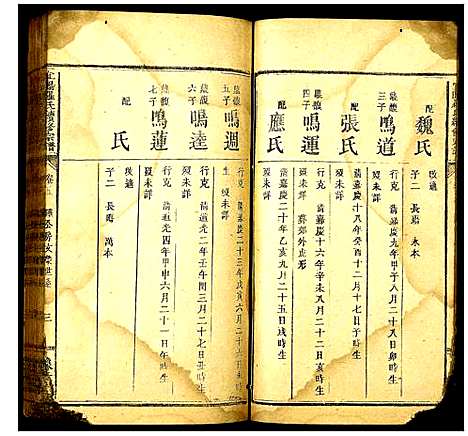 配
魏氏
改適
子二 長 永本
三子
鳴道
行克
清嘉慶九年甲子八月二十八日卯時生
歿未詳
配
張氏
清嘉慶十八年癸酉十二月十七日子時生
歿未詳
四子
鳴運
行克
清嘉慶十六年辛未八月二十二日亥時生
歿未詳
配
應氏
清嘉慶二十年乙亥九月二十五日戌時生
歿未詳
五子
鳴週
行克
清嘉慶二十三年戊寅六月二十六日
生 歿未詳
六子
鳴逵
行克
清道光二年壬午閏三月二十七日丑時生
歿未詳
七子
鳴蓮
行克
清道光四年甲申六月二十一日午時生
歿未詳
配
氏
改適
子二 長 萬本
氏續修宗譜
卷五
三